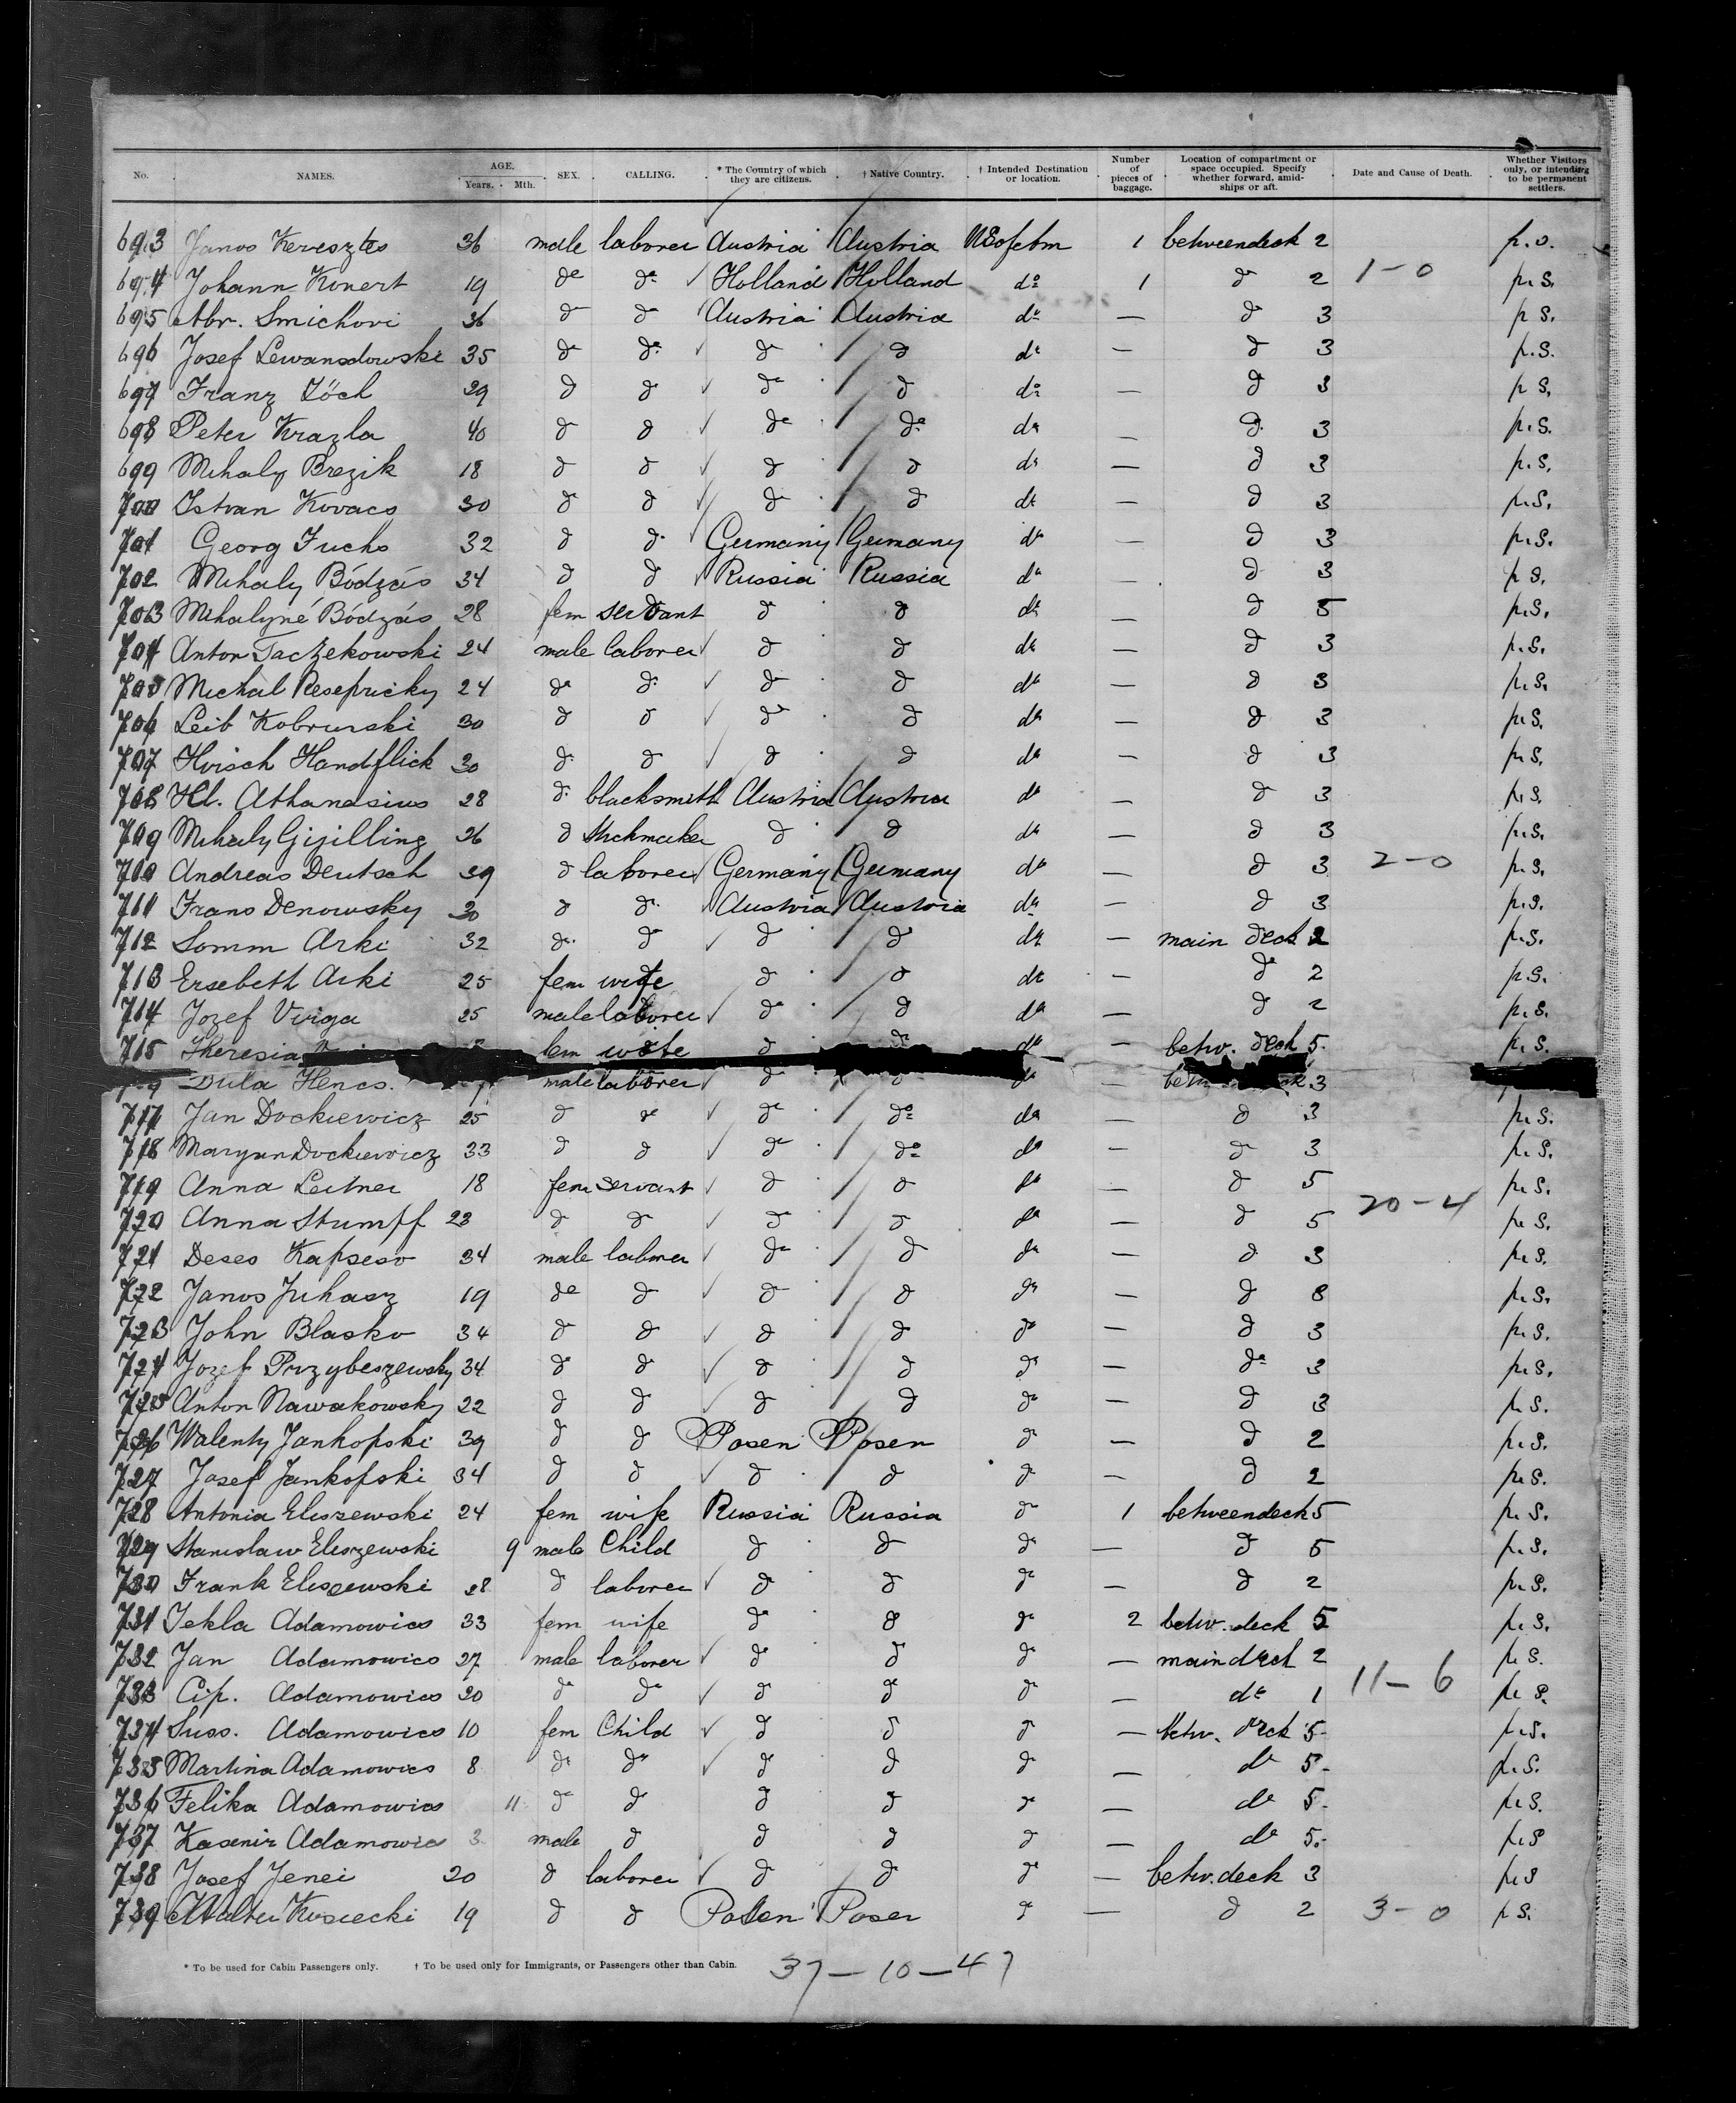 No. NAMES. AGE. Years. Mth. SEX. CALLING. * The Country of which they are citizens. † Native Country. † Intended Destination or location. Number of pieces of baggage. Location of compartment or space occupied. Specify whether forward, amid-ships or aft. Date and Cause of Death. Whether Visitors only, or intending to be permanent settlers.
693 Janos Keresztes 36 male laborer Austria Austria 1 betweendeck 2 p. s.
694 Johann Konert 19 do do Holland Holland do 1 do 2 1-0 p. s.
695 Abr. Smichovi 36 do do Austria Austria do — do 3 p s.
696 Josef Lewansdowski 35 do do do do do — do 3 p. s.
697 Franz Zöch 29 do do do do do — do 3 p s.
698 Peter Krazla 40 do do do do do — do 3 p. s.
699 Mihaly Brezik 18 do do do do do — do 3 p. s.
700 Istvan Kovacs 30 do do do do do — do 3 p. s.
701 Georg Fuchs 32 do do Germany Germany do — do 3 p. s.
702 Mihaly Bódzás 34 do do Russia Russia do — do 3 p s.
703 Mihalyné Bódzás 28 fem servant do do do — do 5 p. s.
704 Anton Taczekowski 24 male laborer do do do — do 3 p. s.
705 Michal Resepricky 24 do do do do do — do 3 p. s.
706 Leib Kobrurski 30 do do do do do — do 3 p. s.
707 Hirsch Handflick 30 do do do do do — do 3 p. s.
708 Hl. Athanasius 28 do blacksmith Austria Austria do — do 3 p. s.
709 Mihaly Gizilling 26 do do do do — do 3 p. s.
710 Andreas Deutsch 39 do laborer Germany Germany do — do 3 2-0 p. s.
711 Frans Denowsky 30 do do Austria Austria do — do 3 p. s.
712 Somm Arki 32 do do do do do — main deck 2 p. s.
713 Ersebeth Arki 25 fem wife do do do — do 2 p. s.
714 Jozef Virga 25 male laborer do do do — do 2 p. s.
715 Theresia fem wife do do do — betw. deck 5 p. s.
Dula Hencs. male laborer do do — deck 3
717 Jan Dockiewicz 25 do do do do do — do 3 p. s.
718 Maryan Dockiewicz 33 do do do do do — do 3 p. s.
719 Anna Leitner 18 fem servant do do do — do 5 p. s.
720 Anna Stumpff 23 do do do do do — do 5 20-4 p. s.
721 Deses Kapseso 34 male laborer do do do — do 3 p. s.
722 Janos Juhasz 19 do do do do do — do 8 p. s.
723 John Blasko 34 do do do do do — do 3 p. s.
724 Jozef Przybeszewsky 34 do do do do do — do 3 p. s.
725 Anton Nawakowsky 22 do do do do do — do 3 p. s.
726 Walenty Jankofski 39 do do Posen Posen do — do 2 p. s.
727 Josef Jankofski 34 do do do do do — do 2 p. s.
728 Antonia Eliszewski 24 fem wife Russia Russia do 1 betweendeck 5 p. s.
729 Stanislaw Eliszewski 9 male Child do do do — do 5 p. s.
730 Frank Eliszewski 28 do laborer do do do — do 2 p. s.
731 Tekla Adamowics 33 fem wife do do do 2 betw. deck 5 p. s.
732 Jan Adamowics 27 male laborer do do do — main deck 2 p. s.
733 Cip. Adamowics 20 do do do do do — do 1 11-6 p. s.
734 Suss. Adamowics 10 fem Child do do do — betw. deck 5 p. s.
735 Martina Adamowics 8 do do do do do — do 5 p. s.
736 Felika Adamowics 11 do do do do do — do 5 p. s.
737 Kasimir Adamowics 3 male do do do do — do 5 p. s
738 Josef Jenei 20 do laborer do do do — betw. deck 3 p. s
739 Walter Kosiecki 19 do do Posen Posen do — do 2 3-0 p s.
* To be used for Cabin Passengers only. † To be used only for Immigrants, or Passengers other than Cabin.
37-10-47